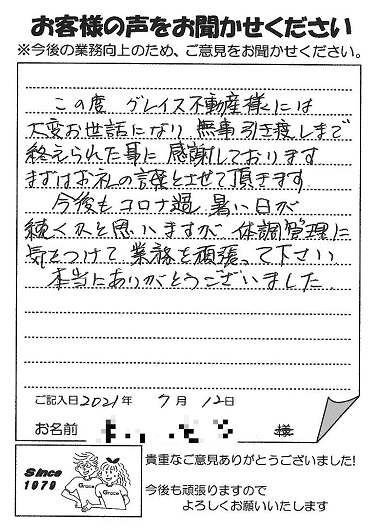 お客様の声をお聞かせください
※今後の業務向上のため、ご意見をお聞かせください。
この度 グレイス不動産様には
大変お世話になり 無事引き渡しまで
終えられた事に 感謝しております
まずはお礼の言葉とさせて頂きます
今後もコロナ過 暑い日が
続くかと思いますが 体調管理に
気をつけて 業務を頑張って下さい
本当にありがとうございました
ご記入日 2021年 7月 12日
お名前 様
Since
1979
Grace
Grace
貴重なご意見ありがとうございました!
今後も頑張りますので
よろしくお願いいたします